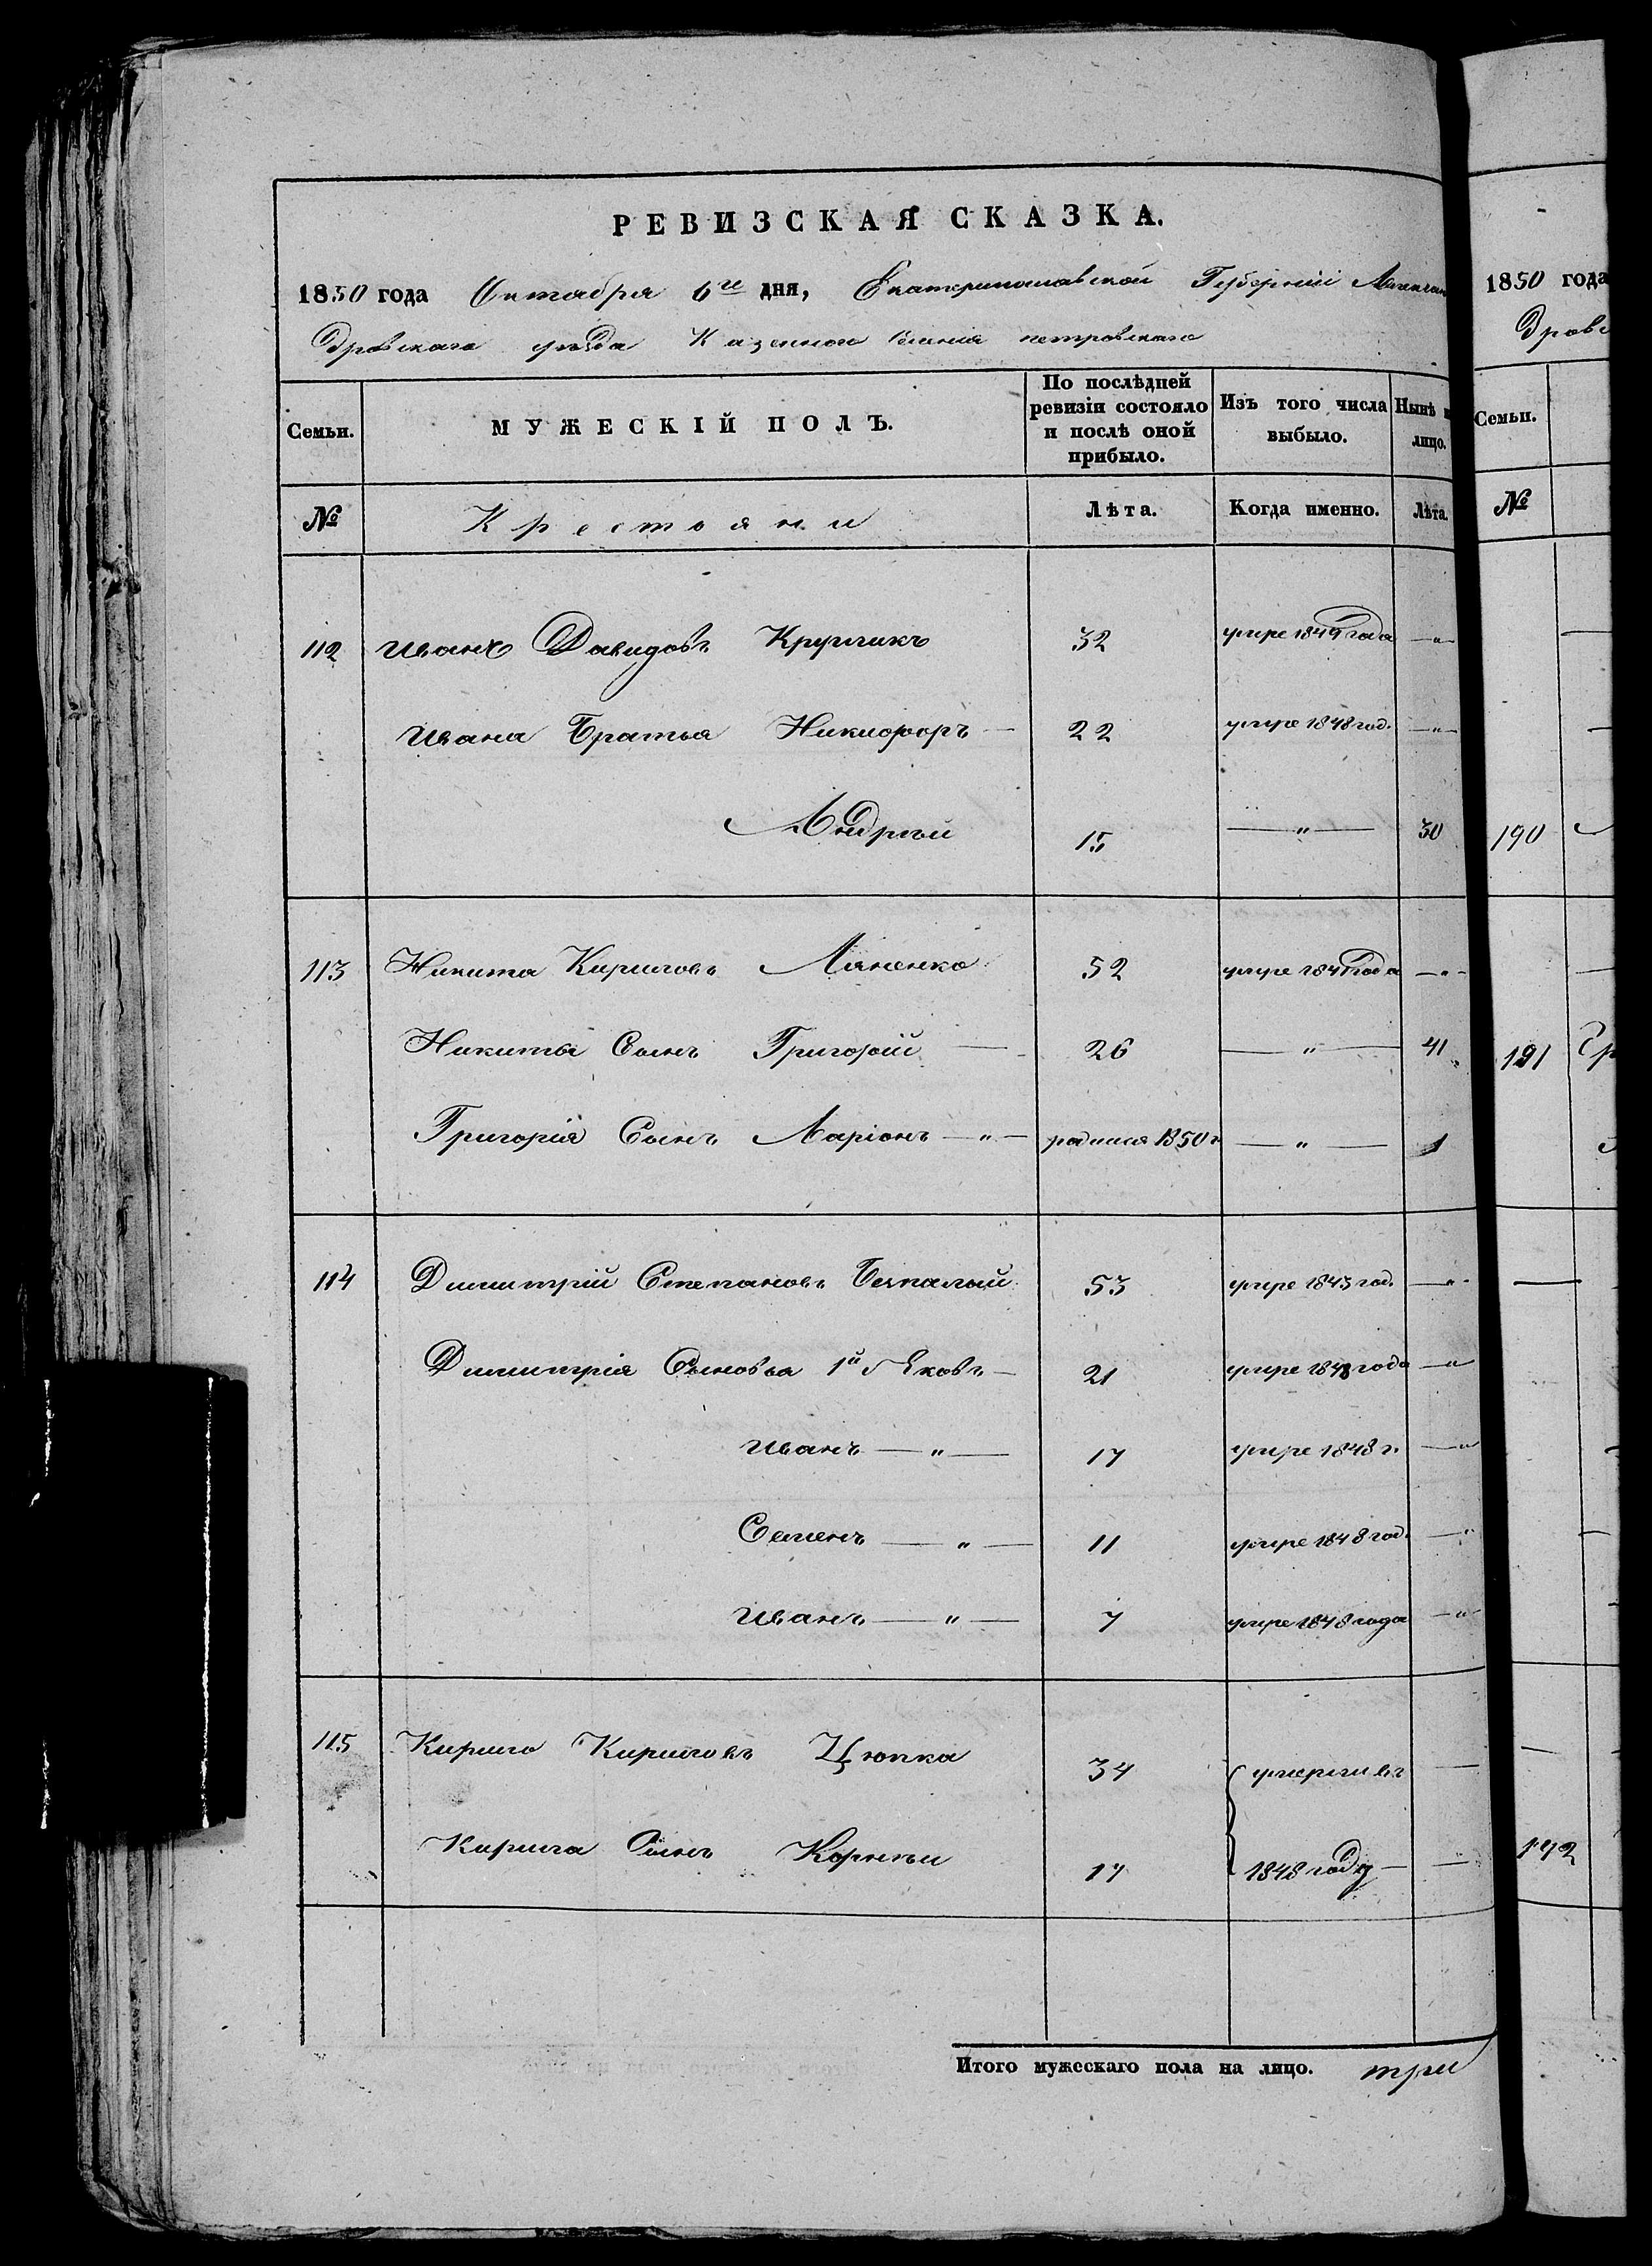 РЕВИЗСКАЯ СКАЗКА.
1850 года Октября 6го дня, Екатеринославской Губерніи Алексан
дровскаго уѣзда Казеннаго Селенія петровскаго
Семьи. МУЖЕСКІЙ ПОЛЪ. По послѣдней ревизіи состояло и послѣ оной прибыло. Изъ того числа выбыло. Нынѣ лицо.
№ Крестьяни Лѣта. Когда именно. Лѣта.
112 Иванъ Давидовъ Кругликъ 32 умре 1849 года — " —
Ивана Братья Никифоръ — 22 умре 1848 год. — " —
Андрѣй 15 — " — 30
113 Никита Кириловъ Ляненко 52 умре 1841 года — " —
Никиты Сынъ Григорій — 26 — " — 41
Григорія Сынъ Ларіонъ — " — родился 1850 г — " — 1
114 Димитрій Степановъ Безпалый 53 умре 1843 год. — " —
Димитрія Сыновья 1й Яковъ — 21 умре 1848 года — "
Иванъ — " — 17 умре 1848 г. — "
Семенъ — " — 11 умре 1848 год. — "
Иванъ — " — 7 умре 1848 года — "
115 Кирило Кириловъ Цюпка 34 умерли въ —
Кирила Сынъ Корнѣи 17 1848 году — —
Итого мужескаго пола на лицо. три
1850 года
Дровс
Семьи.
№
190
191 Гр
192